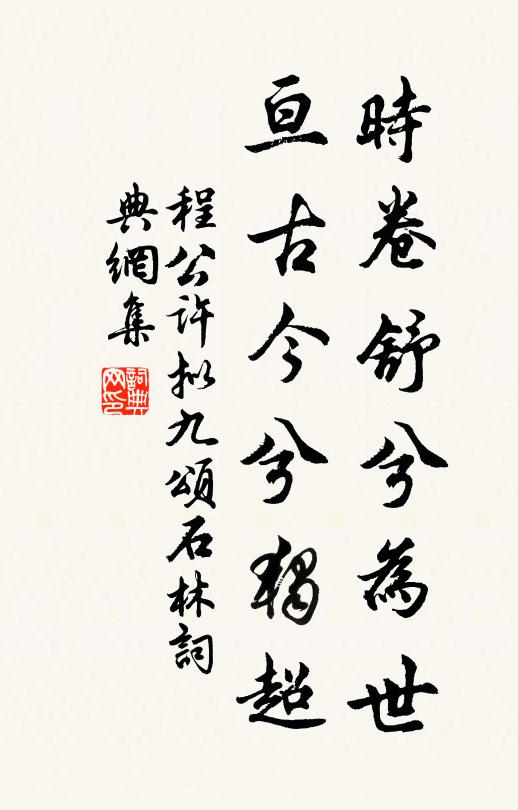 時卷舒兮為世
亘古今兮獨超
程公許拟九頌石林詞
典網集
詞典
网印